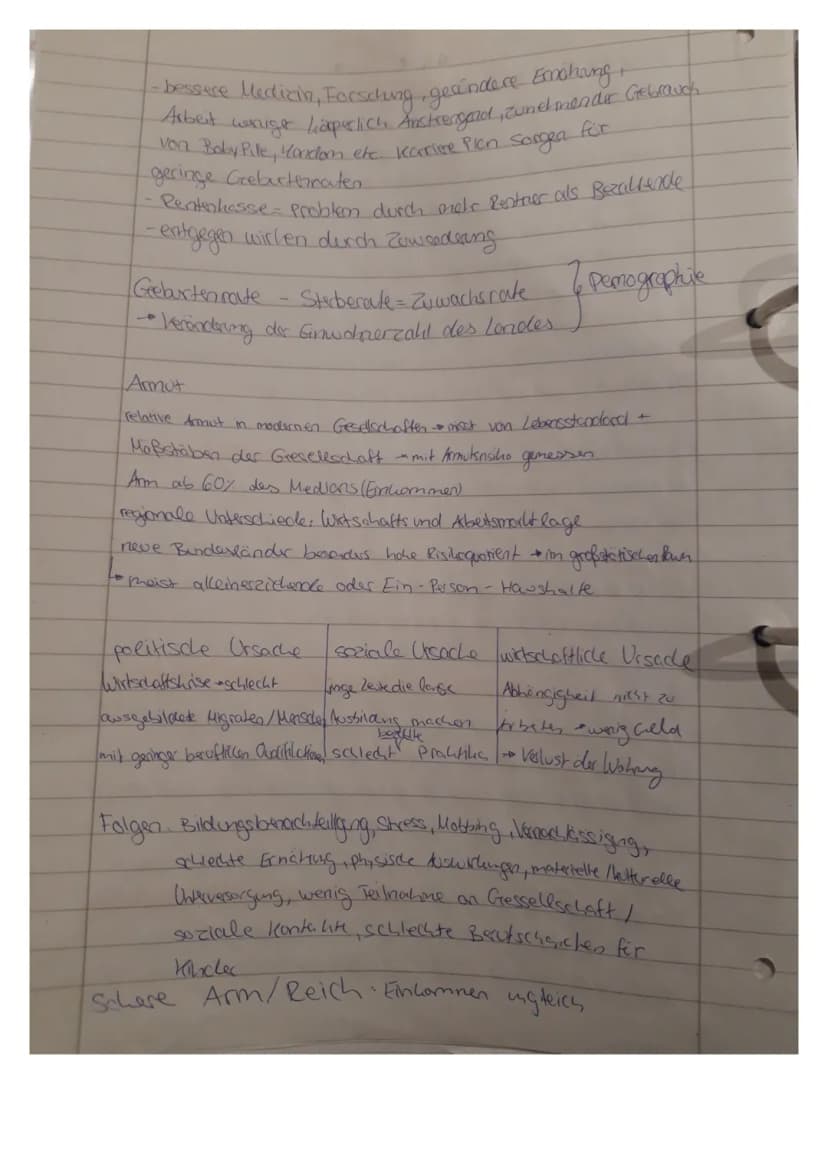 - bessere Medizin, Forschung, gesündere Ernährung,
Arbeit weniger körperlich Anstrengend, zunehmender Gebrauch
von Baby Pille, Kondom etc. Karriere Plan sorgen für
geringe Geburtenraten
- Rentenkasse = Problem durch mehr Rentner als Bezahlende
- entgegen wirken durch Zuwanderung
Geburtenrate - Sterberate = Zuwachsrate } Demographie
→ Veränderung der Einwohnerzahl des Landes
Armut
relative Armut in modernen Gesellschaften → misst von Lebensstandard +
Maßstäben der Gesellschaft → mit Armutsrisiko gemessen
Arm ab 60% des Medians (Einkommen)
regionale Unterschiede: Wirtschafts und Arbeitsmarktlage
neue Bundesländer besonders hohe Risikoquotient → im großstädtischen Raum
↳ meist alleinerziehende oder Ein-Person-Haushalte
politische Ursache | soziale Ursache | wirtschaftliche Ursache
Wirtschaftskrise → schlecht | junge Leute die lange | Abhängigkeit nicht zu
ausgebildete Migraten / Mensche | Ausbildung machen | Arbeiten → wenig Geld
bezahlte
mit geringer beruflichen Qualifikation | schlecht Praktika | → Verlust der Wohnung
Folgen: Bildungsbenachteiligung, Stress, Mobbing, Vernachlässigung,
schlechte Ernährung, physische Auswirkungen, materielle / kulturelle
Unterversorgung, wenig Teilnahme an Gessellschaft /
soziale Kontakte, schlechte Berufschancen für
Kinder
Schere Arm/Reich: Einkommen ungleich